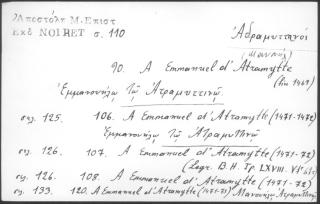 Ἀποστόλη Μ. Ἐπιστ
Ἐκδ NOIRET σ. 110
Ἀδραμυττηνός
(Μανουήλ)
90. A Emmanuel d'Atramytte
(fin 1469)
Ἐμμανουήλῳ Τῷ Ἀτραμυττινῷ
σελ. 125. 106. A Emmanuel d'Atramytte (1471-1472)
Ἐμμανουήλῳ Τῷ Ἀτραμυττηνῷ
σελ. 126. 107. A Emmanuel d'Atramytte (1471-72)
(Legr. B. H. Τρ. LXVIII. VI
σελ. 126. 108. A Emmanuel d'Atramytte (1471-72)
σελ. 133. 120. A Emmanuel d'Atramytte (1471-72) Μανουήλῳ